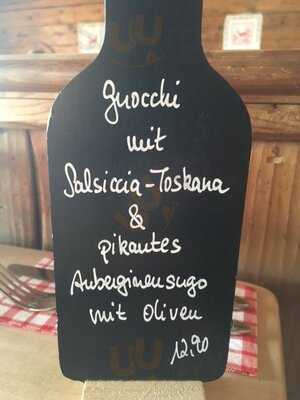 Gnocchi
mit
Salsiccia-Toskana
&
pikantes
Auberginensugo
mit Oliven
12,90